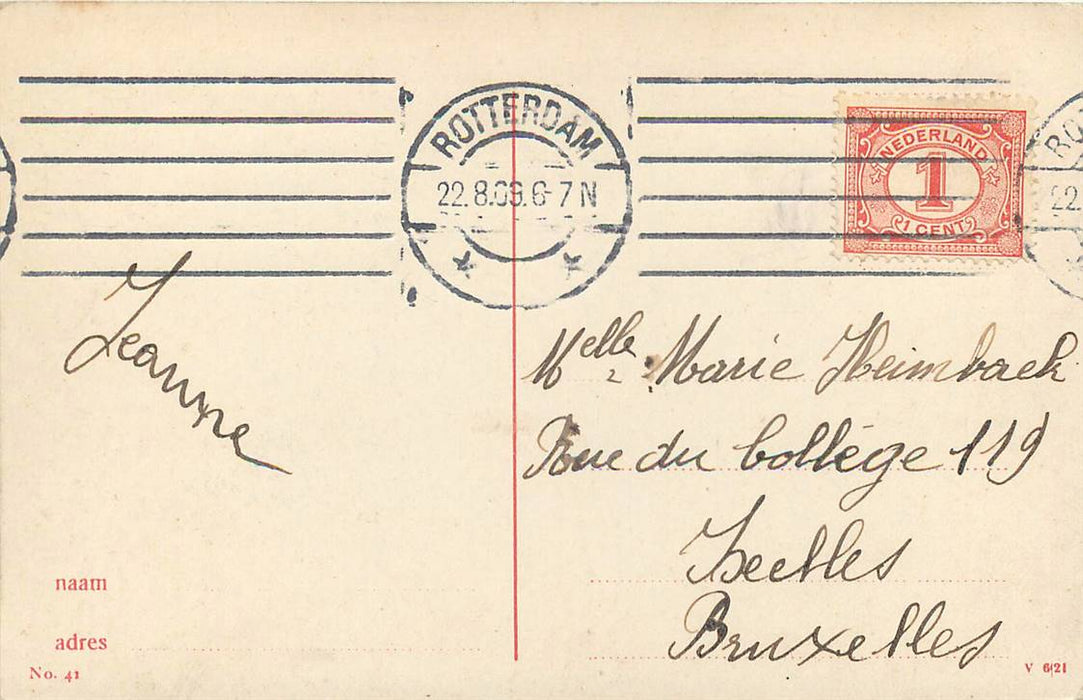 ROTTERDAM
22.8.09.6-7 N
NEDERLAND
1
1 CENT
22.
Jeanne
Melle Marie Heimback
Rue du Collège 119
Ixelles
Bruxelles
naam
adres
No. 41
V 6|21